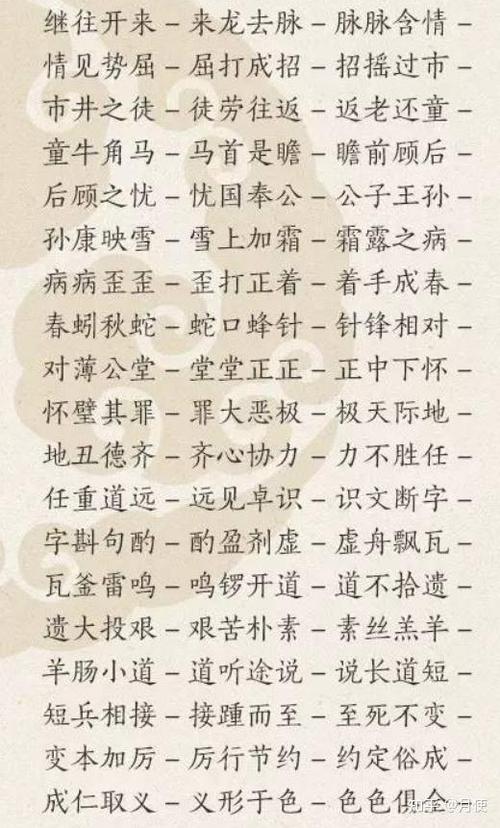 继往开来 – 来龙去脉 – 脉脉含情 –
情见势屈 – 屈打成招 – 招摇过市 –
市井之徒 – 徒劳往返 – 返老还童 –
童牛角马 – 马首是瞻 – 瞻前顾后 –
后顾之忧 – 忧国奉公 – 公子王孙 –
孙康映雪 – 雪上加霜 – 霜露之病 –
病病歪歪 – 歪打正着 – 着手成春 –
春蚓秋蛇 – 蛇口蜂针 – 针锋相对 –
对薄公堂 – 堂堂正正 – 正中下怀 –
怀璧其罪 – 罪大恶极 – 极天际地 –
地丑德齐 – 齐心协力 – 力不胜任 –
任重道远 – 远见卓识 – 识文断字 –
字斟句酌 – 酌盈剂虚 – 虚舟飘瓦 –
瓦釜雷鸣 – 鸣锣开道 – 道不拾遗 –
遗大投艰 – 艰苦朴素 – 素丝羔羊 –
羊肠小道 – 道听途说 – 说长道短 –
短兵相接 – 接踵而至 – 至死不变 –
变本加厉 – 厉行节约 – 约定俗成 –
成仁取义 – 义形于色 – 色色俱全 –
知乎 @月使